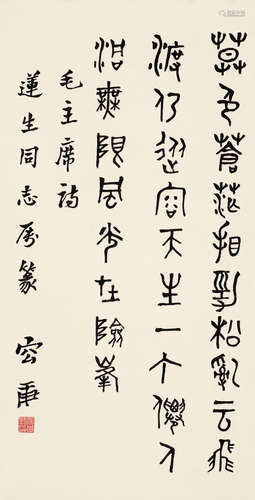 莫色蒼茫看勁松亂云飛
渡仍從容天生一个僊人
洞無限風光在險峯
毛主席詩
蓮生同志属篆
容庚